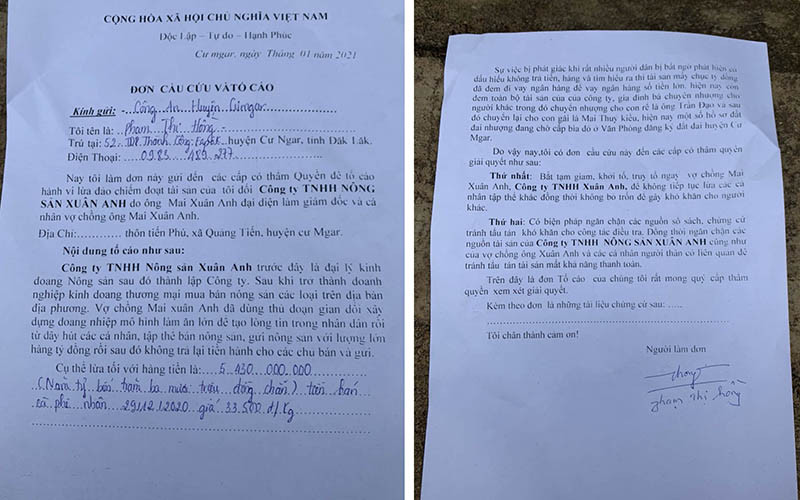 CỘNG HÒA XÃ HỘI CHỦ NGHĨA VIỆT NAM
Độc Lập – Tự do – Hạnh Phúc
Cư mgar, ngày Tháng 01 năm 2021
ĐƠN CẦU CỨU VÀ TỐ CÁO
Kính gửi: - Công An Huyện Cưmgar
Tôi tên là: Phạm Thị Hồng
Trú tại: 52 TDP Thành Công, huyện Cư Ngar, tỉnh Đăk Lăk.
Điện Thoại: 0983 489 277
Nay tôi làm đơn này gửi đến các cấp có thẩm Quyền để tố cáo
hành vi lừa đảo chiếm đoạt tài sản của tôi đối Công ty TNHH NÔNG
SẢN XUÂN ANH do ông Mai Xuân Anh đại diện làm giám đốc và cá
nhân vợ chồng ông Mai Xuân Anh.
Địa Chỉ:............ thôn tiến Phú, xã Quảng Tiến, huyện cư Mgar.
Nội dung tố cáo như sau:
Công ty TNHH Nông sản Xuân Anh trước đây là đại lý kinh
doang Nông sản sau đó thành lập Công ty. Sau khi trở thành doanh
nghiệp kinh doang thương mại mua bán nông sản các loại trên địa bàn
địa phương. Vợ chồng Mai xuân Anh đã dùng thủ đoạn gian dối xây
dựng doang nhiệp mô hình làm ăn lớn để tạo lòng tin trong nhân dân rồi
từ dây hút các cá nhân, tập thể bán nông sản, gửi nông sản với lượng lớn
hàng tỷ đồng rồi sau đó không trả lại tiền hành cho các chu bán và gửi.
Cụ thể lừa tôi với hàng tiền là:.... 5.430.000.000
(Năm tỷ bốn trăm ba mươi triệu đồng chẵn) tiền bán
cà phê nhân 29/12/2020 giá 33.500 đ/kg
Sự việc bị phát giác khi rất nhiều người dân bị bất ngờ phát hiện có
dấu hiểu không trả tiền, hàng và tìm hiểu ra thì tài sản mấy chục tỷ đồng
đã đem đi vay ngân hàng để vay ngân hàng số tiền lớn. hiện nay còn
đem toàn bộ tài sản của của công ty, gia đình bà chuyên nhượng cho
người khác trong đó chuyển nhượng cho con rể là ông Trần Đạo và sau
đó chuyển lại cho con gái là Mai Thuý kiều, hiện nay một số hồ sơ đất
đai nhượng đang chờ cấp bìa đỏ ở Văn Phòng đăng ký đất đai huyện Cư
Mgar.
Do vậy nay,tôi có đơn cầu cứu này đến các cấp có thẩm quyền
giải quyết như sau:
Thứ nhất: Bắt tạm giam, khởi tố, truy tố ngay vợ chồng Mai
Xuân Anh, Công ty TNHH Xuân Anh, để không tiếp tục lừa các cá
nhân tập thể khác đồng thời không bỏ trốn đề gây khó khăn cho người
khác.
Thứ hai: Có biện pháp ngăn chặn các nguồn sổ sách, chứng cứ
tránh tẩu tán khó khăn cho công tác điều tra. Đồng thời ngăn chặn các
nguồn tài sản của Công ty TNHH NÔNG SẢN XUÂN ANH cũng như
của vợ chồng ông Xuân Anh và các cá nhân người thân có liên quan để
tránh tẩu tán tài sản mất khả năng thanh toán.
Trên đây là đơn Tố cáo của chúng tôi rất mong quý cấp thẩm
quyền xem xét giải quyết.
Kèm theo đơn là những tài liệu chứng cứ sau: .....
Tôi chân thành cảm ơn!
Người làm đơn
Phạm thị hồng